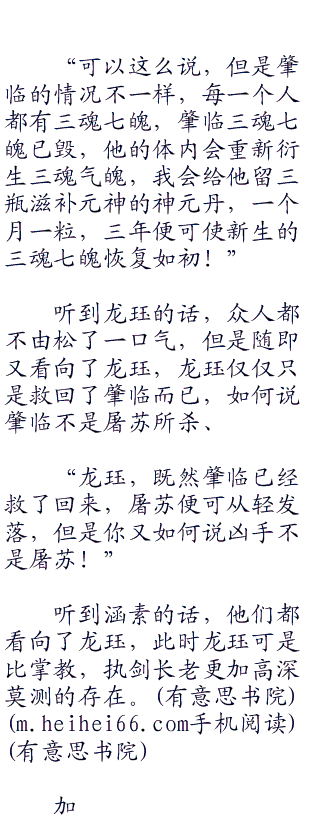 “可以这么说，但是肇
临的情况不一样，每一个人
都有三魂七魄，肇临三魂七
魄已毁，他的体内会重新衍
生三魂气魄，我会给他留三
瓶滋补元神的神元丹，一个
月一粒，三年便可使新生的
三魂七魄恢复如初！”
听到龙珏的话，众人都
不由松了一口气，但是随即
又看向了龙珏，龙珏仅仅只
是救回了肇临而已，如何说
肇临不是屠苏所杀、
“龙珏，既然肇临已经
救了回来，屠苏便可从轻发
落，但是你又如何说凶手不
是屠苏！”
听到涵素的话，他们都
看向了龙珏，此时龙珏可是
比掌教，执剑长老更加高深
莫测的存在。(有意思书院)
(m.heihei66.com手机阅读)
(有意思书院)
加